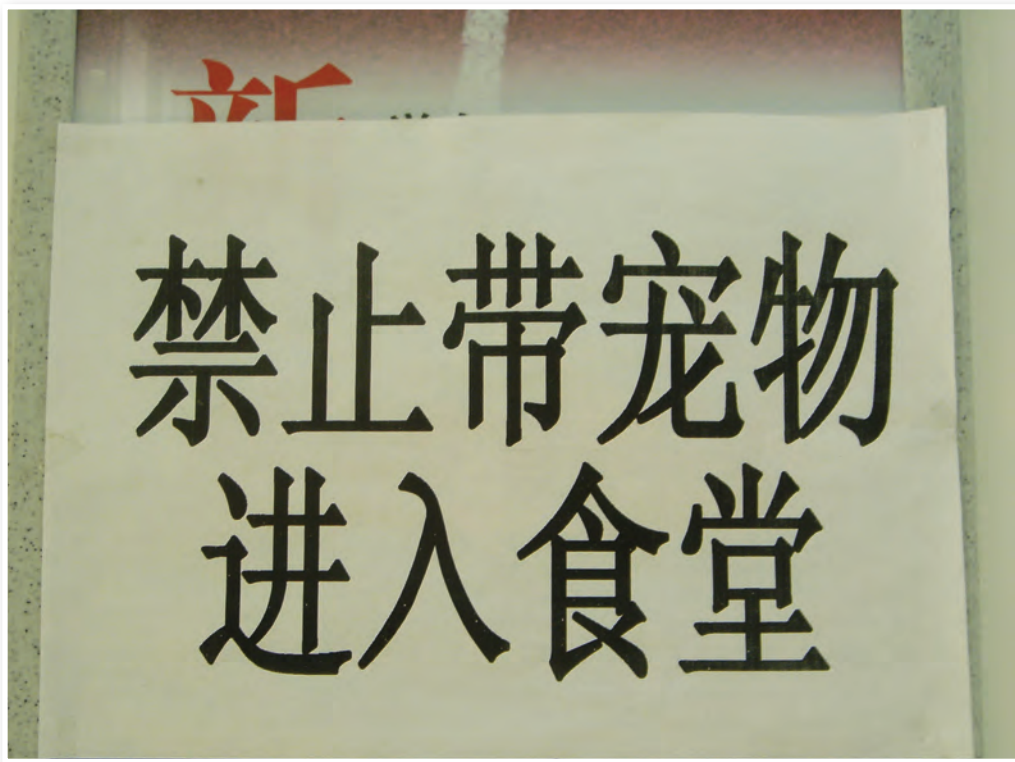 禁止带宠物
进入食堂